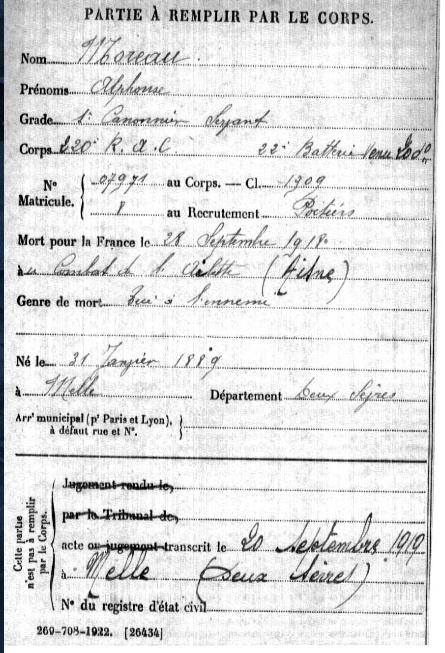 PARTIE À REMPLIR PAR LE CORPS.
Nom Moreau
Prénoms Alphonse
Grade 1r Canonnier Servant
Corps 220e R.A.C 22e Batterie
No Matricule. 07971 au Corps. — Cl. 1909
8 au Recrutement Poitiers
Mort pour la France le 28 Septembre 1918
à Combat de l'Ailette (Aisne)
Genre de mort Tué à l'ennemi
Né le 31 Janvier 1889
à Melle Département Deux Sèvres
Arrt municipal (pr Paris et Lyon),
à défaut rue et No.
Cette partie
n'est pas à remplir
par le Corps.
Jugement rendu le,
par le Tribunal de,
acte ou jugement transcrit le 20 Septembre 1919
à Melle (Deux Sèvres)
No du registre d'état civil
269-708-1922. [26434]